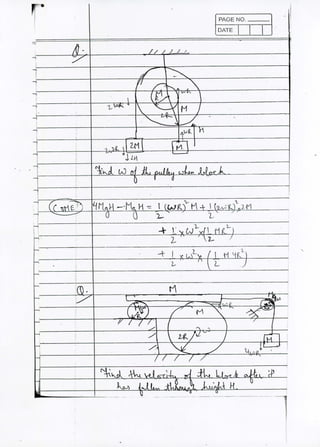 PAGE NO.
DATE
Q.
M
ωR
2ωR
M
2R
2ωR
2M
ωR
H
M
2H
find ω of the pulley when block.
COME 4MgH - MgH = 1/2 (ωR)² M + 1/2 (2ωR)² 2M
+ 1/2 × ω² × (1/2 MR²)
+ 1/2 × ω² × (1/2 M 4R²)
Q.
M
ωR
M
R
2R
ω
M
4ωR
find the velocity of the block after it
has fallen through height H.